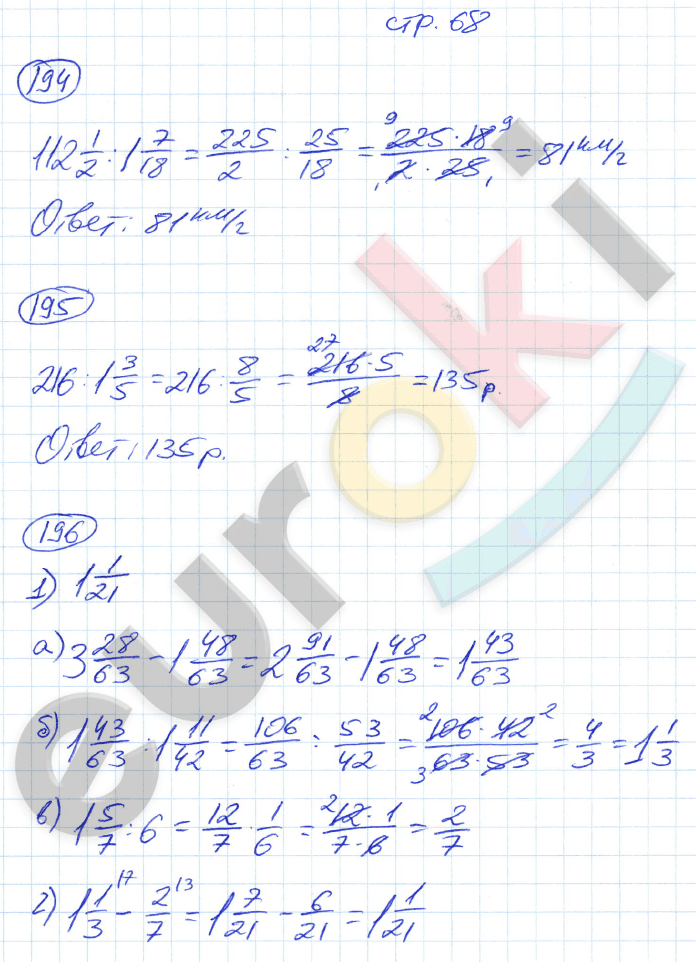 стр. 68
194
112 1/2 : 1 7/18 = 225/2 : 25/18 = 225 · 18 / 2 · 25 = 81 км/г
Ответ: 81 км/г
195
216 : 1 3/5 = 216 : 8/5 = 216 · 5 / 8 = 135 р.
Ответ: 135 р.
196
1) 1 1/21
а) 3 28/63 - 1 48/63 = 2 91/63 - 1 48/63 = 1 43/63
б) 1 43/63 : 1 11/42 = 106/63 : 53/42 = 106 · 42 / 63 · 53 = 4/3 = 1 1/3
в) 1 5/7 : 6 = 12/7 · 1/6 = 12 · 1 / 7 · 6 = 2/7
г) 1 1/3 - 2/7 = 1 7/21 - 6/21 = 1 1/21
euroki